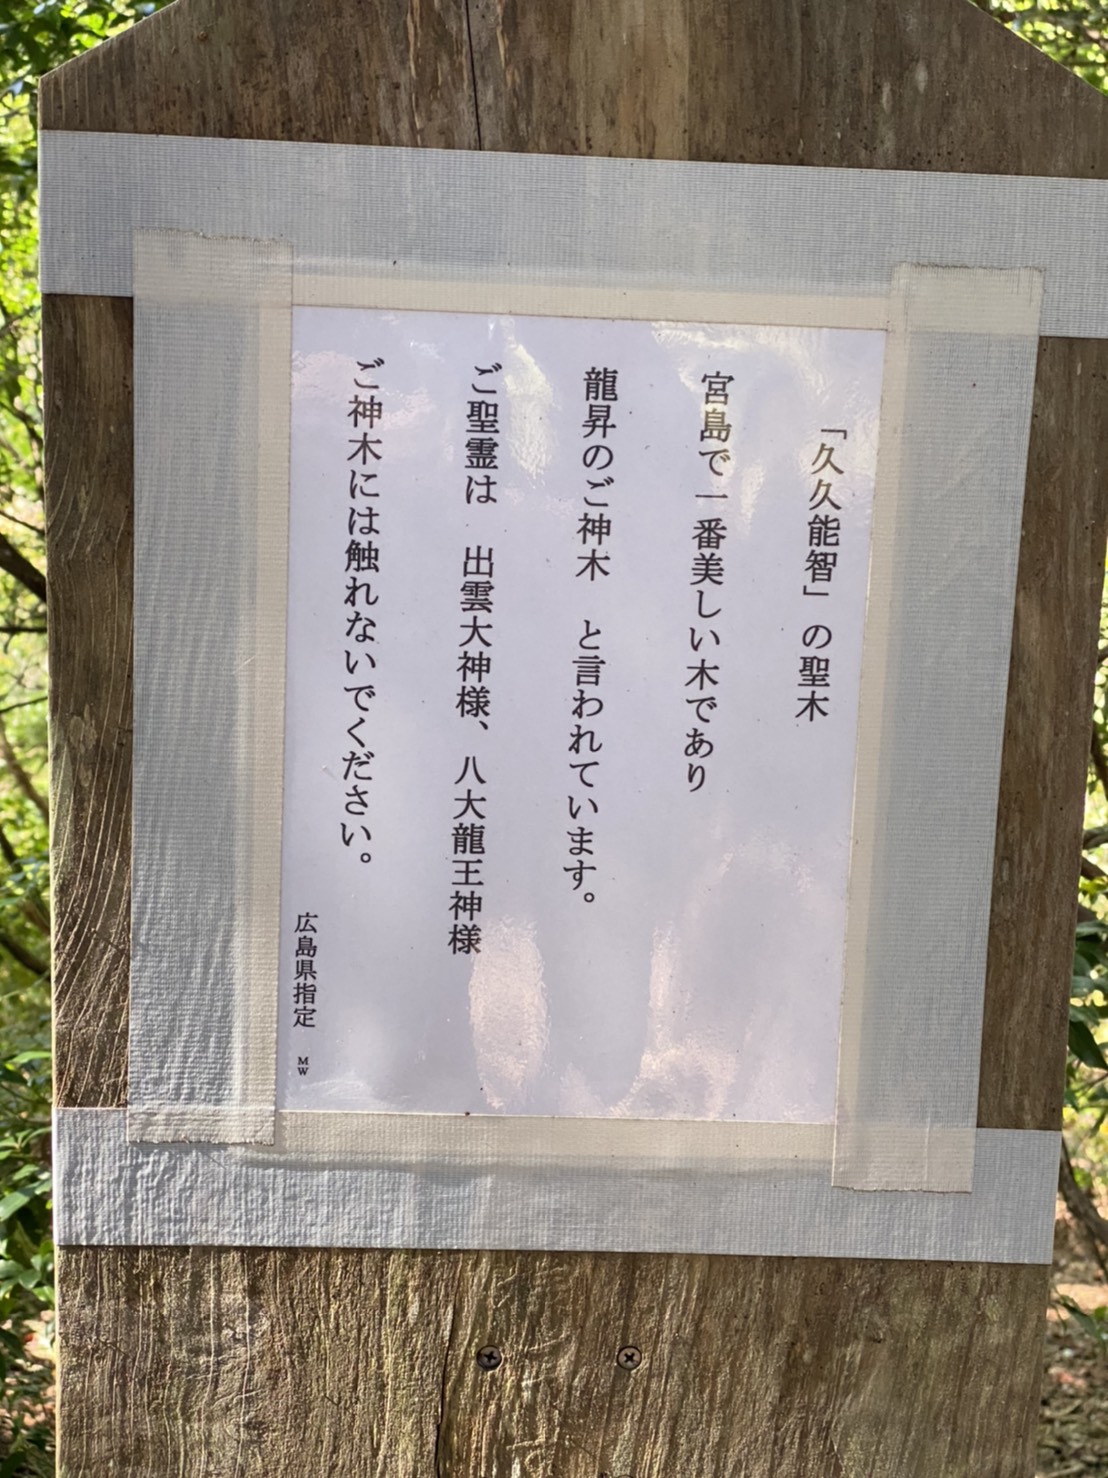 「久久能智」の聖木
宮島で一番美しい木であり
龍昇のご神木　と言われています。
ご聖霊は　出雲大神様、八大龍王神様
ご神木には触れないでください。
広島県指定　MW